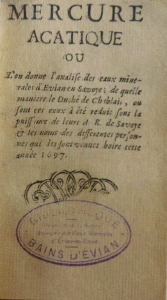 MERCURE
ACATIQUE
OU
L'on donne l'analise des eaux mine-
rales d'Evian en Savoye; de quelle
maniere le Duché de Chablai, ou
sont ces eaux à été reduit sous la
puissance de leurs A. R. de Savoye
& les noms des differentes person-
nes qui les sont venues boire cette
année 1697.
BAINS D'EVIAN